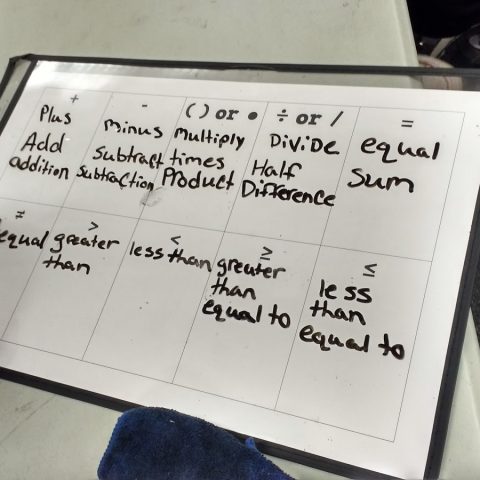 +
Plus
Add
addition
-
minus
Subtract
Subtraction
( ) or •
Multiply
times
Product
÷ or /
Divide
Half
Difference
=
equal
Sum
≠
equal
>
greater
than
<
less than
≥
greater
than
equal to
≤
less
than
equal to